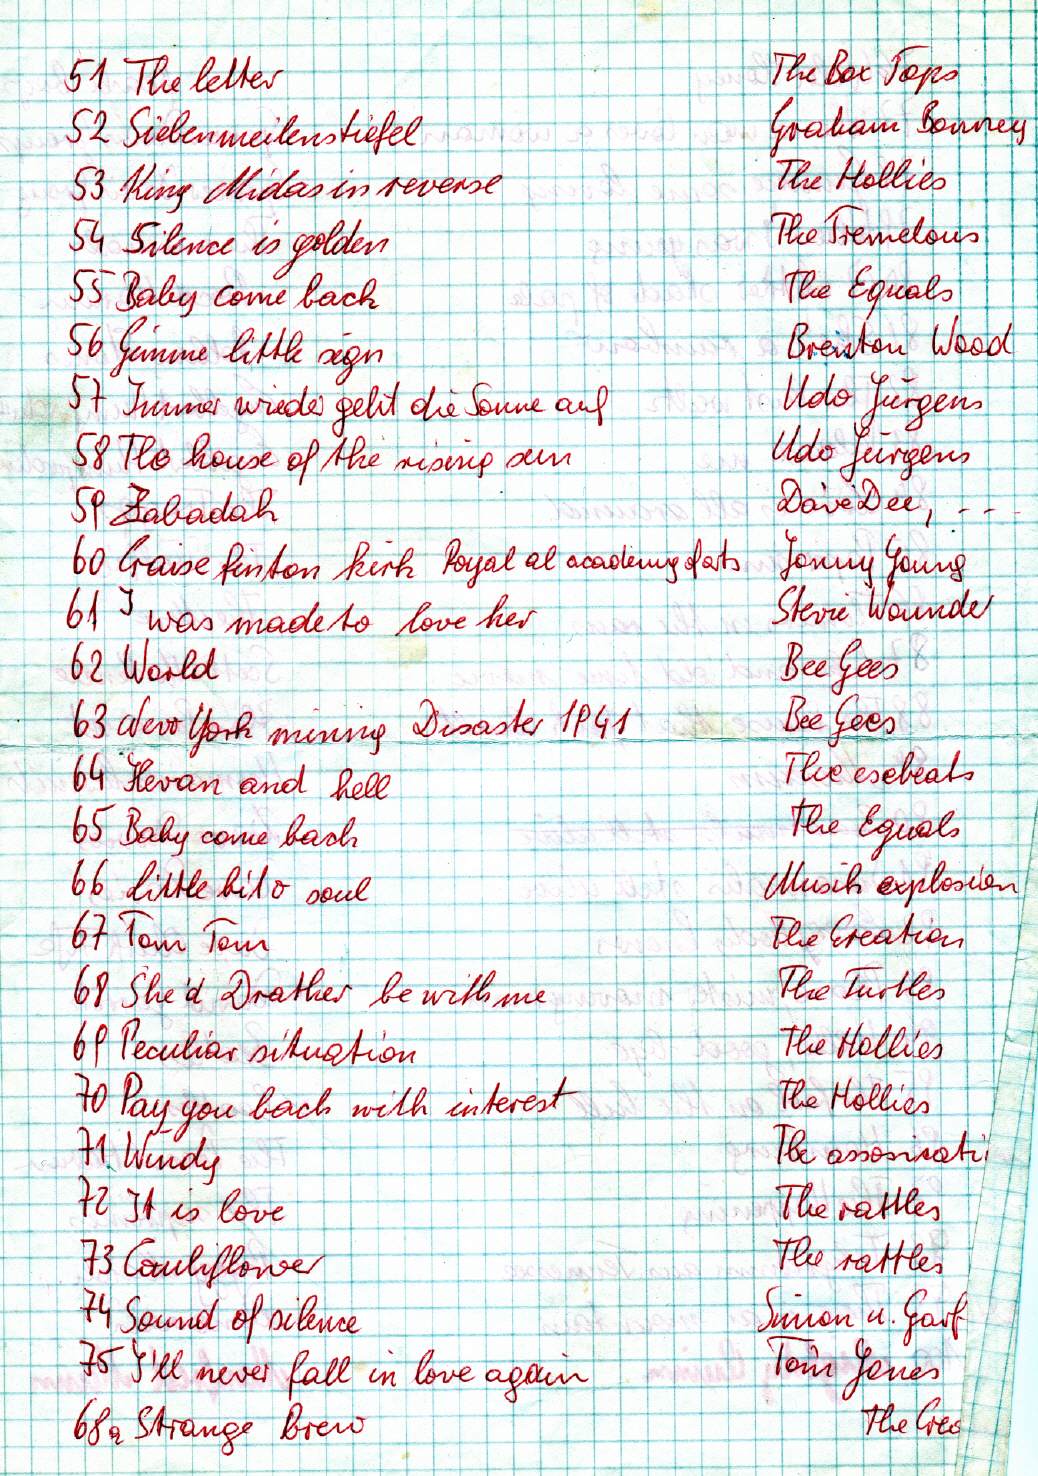 51 The letter The Box Tops
52 Siebenmeilenstiefel Graham Bonney
53 King Midas in reverse The Hollies
54 Silence is golden The Tremelous
55 Baby come back The Equals
56 Gimme little sign Brenton Wood
57 Immer wieder geht die Sonne auf Udo Jürgens
58 The house of the rising sun Udo Jürgens
59 Zabadah Dave Dee, ---
60 Craise finton kirk Royal al academy of arts Jonny Young
61 I was made to love her Stevie Wounder
62 World Bee Gees
63 New York mining Disaster 1941 Bee Gees
64 Hevan and hell The esebeats
65 Baby come back The Equals
66 Little bit o soul Musik explosion
67 Tom Tom The Creation
68 She'd Drather be with me The Turtles
69 Peculiar situation The Hollies
70 Pay you back with interest The Hollies
71 Windy The assosiati
72 It is love The rattles
73 Cauliflower The rattles
74 Sound of silence Simon u. Garf
75 I'll never fall in love again Tom Jones
68a Strange brew The Crea